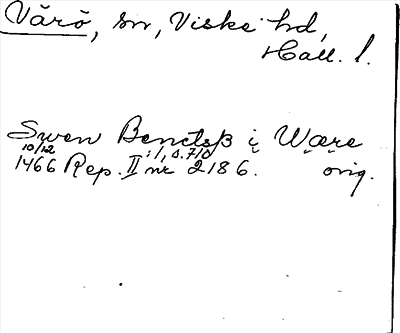 Värö, sn, Viske hd,
Hall. l.
Swen Benctsß i Wære
10/12 :1, s.710
1466 Rep. II nr 2186. orig.